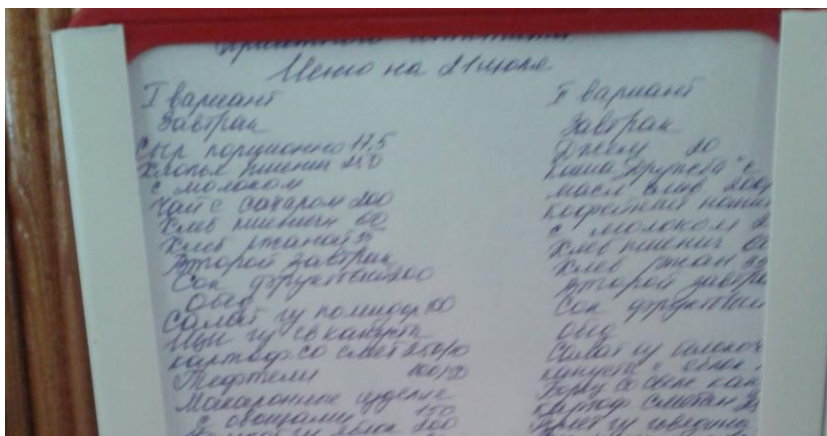 Приятного аппетита
Меню на 21 июля
I вариант
Завтрак
Сыр порционно 17,5
Хлопья пшенич 250
с молоком
Чай с сахаром 200
Хлеб пшеничн 60
Хлеб ржаной 35
Второй завтрак
Сок фруктовый 200
Обед
Салат из помидор 100
Щи из св капусты
картоф со смет 250/10
Тефтели
Макаронные изделие
с овощами 150
II вариант
Завтрак
Джем 20
Каша "Дружба" с
масл слив 200/
кофейный напи
с молоком 2
Хлеб пшенич 6
Хлеб ржан 35
Второй завтра
Сок фруктовый
Обед
Салат из белокоч
капусты с яблок
Борщ со свеж кап
картоф сметан 25